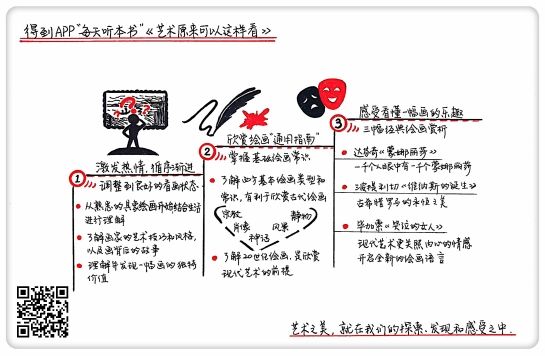 得到APP"每天听本书"《艺术原来可以这样看》
1
激发热情,循序渐进
调整到良好的看画状态
从熟悉的具象绘画开始结合生活
进行理解
了解画家的艺术技巧和风格,
以及画背后的故事
理解并发现一幅画的独特
价值
2
欣赏绘画"通用指南"
掌握基础绘画常识
了解四万基本绘画类型和
常识,有利于欣赏古代绘画
宗教
静物
肖像
风景
神话
了解20世纪绘画,是欣赏
现代艺术的前提
3
感受看懂一幅画的乐趣
三幅经典绘画赏析
达芬奇《蒙娜丽莎》
一千个人眼中有一千个蒙娜丽莎
波提切利《维纳斯的诞生》
古希腊罗马的永恒之美
毕加索《哭泣的女人》
现代艺术更关照内心的情感
开启全新的绘画语言
艺术之美,就在我们的探索、发现和感受之中.